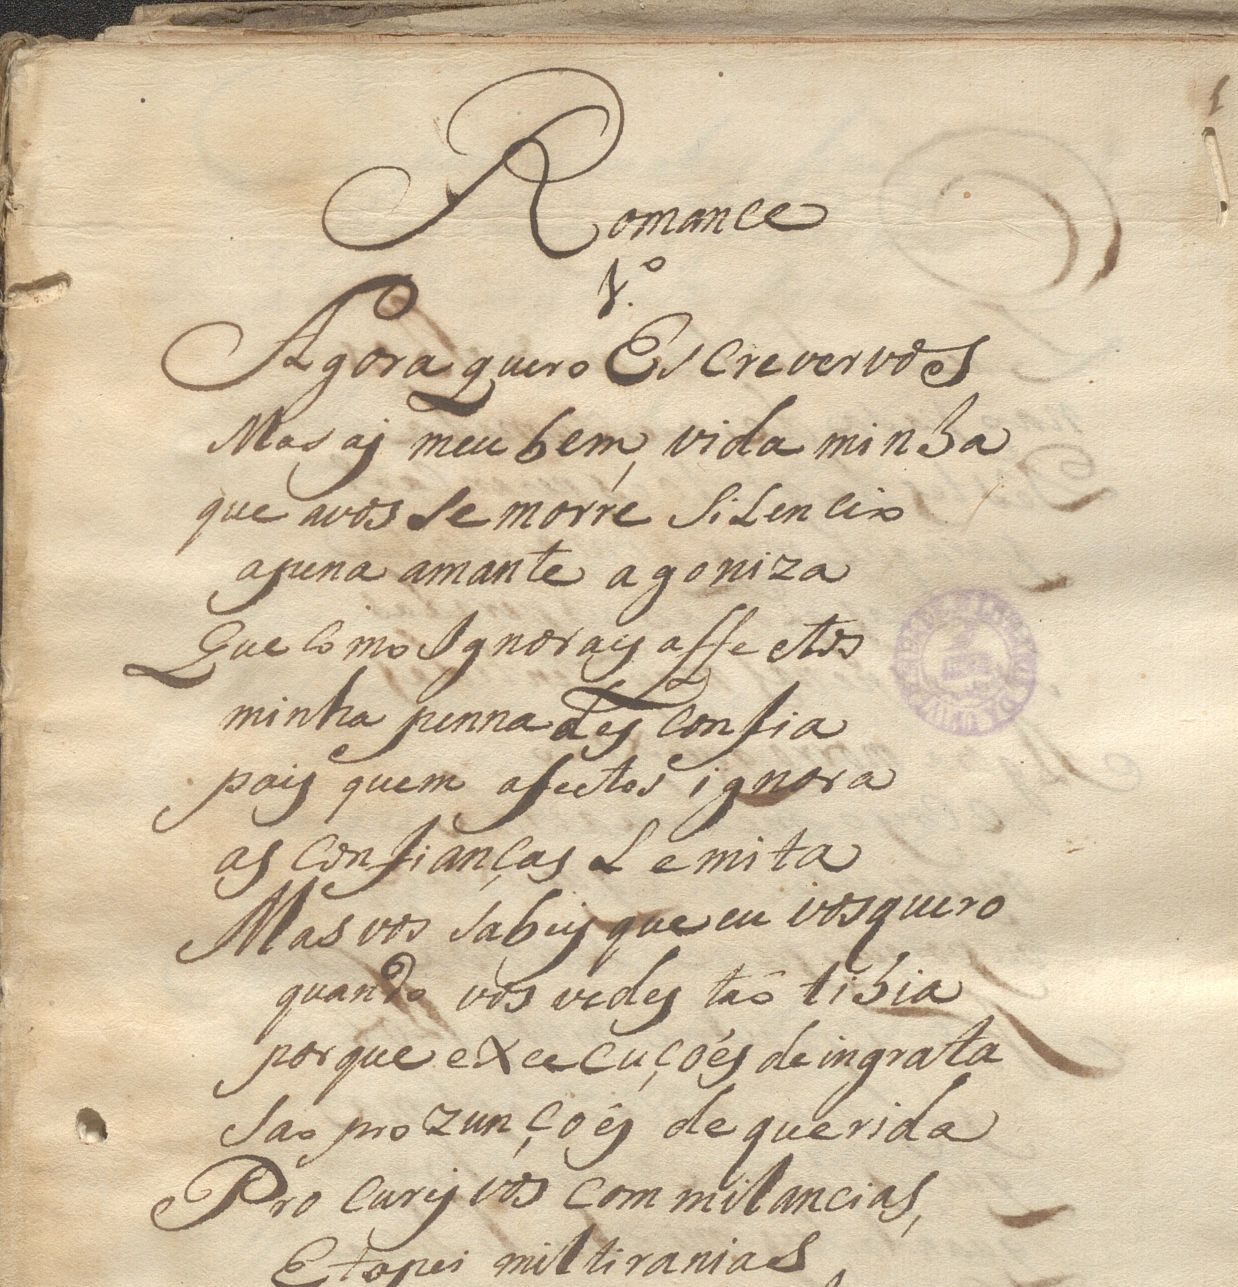 1
Romance
1.º
Agora quero Escrevervos
Mas aj meu bem, vida minha
que avos se morre Silencio
apena amante agoniza
Que como Ignoraes affectos
minha penna desconfia
pois quem afectos ignora
as confianças Lemita
Mas vos sabeis que eu vos quero
quando vos vedes taõ tibia
porque execuçoẽs de ingrata
sao prozunçoẽs de querida
Procureyvos com mil ancias,
Etopei mil tiranias